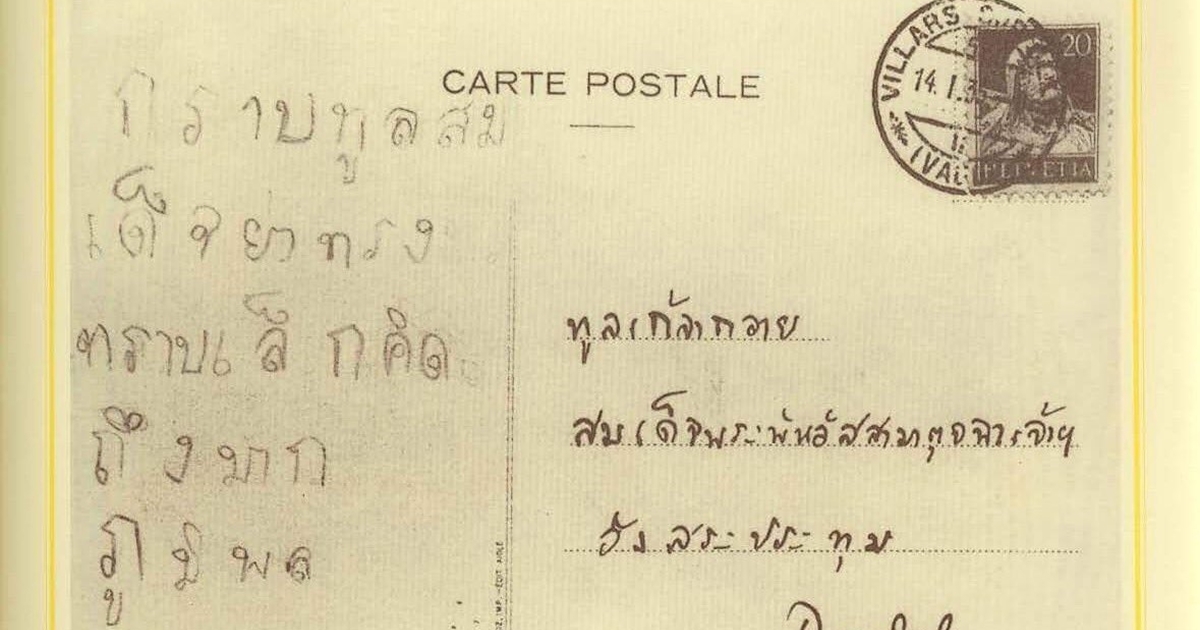 CARTE POSTALE
VILLARS
14.I.3
20
HELVETIA
กราบทูลสม
เด็จย่าทรง
ทราบเล็กคิด
ถึงมาก
ภูมิพล
ทูลเกล้าถวาย
สมเด็จพระพันวัสสามาตุจฉาเจ้าฯ
วังสระประทุม